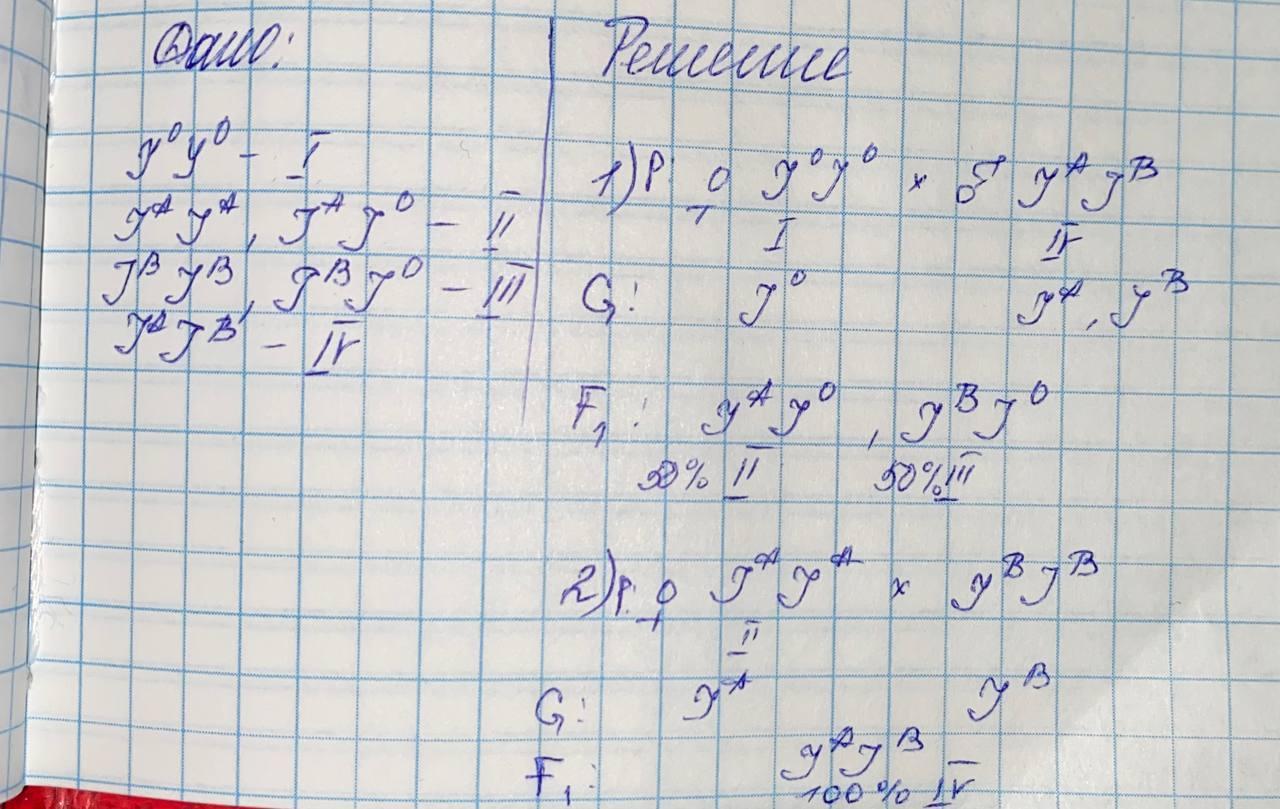 Дано:
J⁰J⁰ - I
JᴬJᴬ, JᴬJ⁰ - II
JᴮJᴮ, JᴮJ⁰ - III
JᴬJᴮ - IV
Решение
1) P ♀ J⁰J⁰ × ♂ JᴬJᴮ
I IV
G: J⁰ Jᴬ, Jᴮ
F₁: JᴬJ⁰, JᴮJ⁰
50% II 50% III
2) P: ♀ JᴬJᴬ × JᴮJᴮ
II
G: Jᴬ Jᴮ
F₁: JᴬJᴮ
100% IV